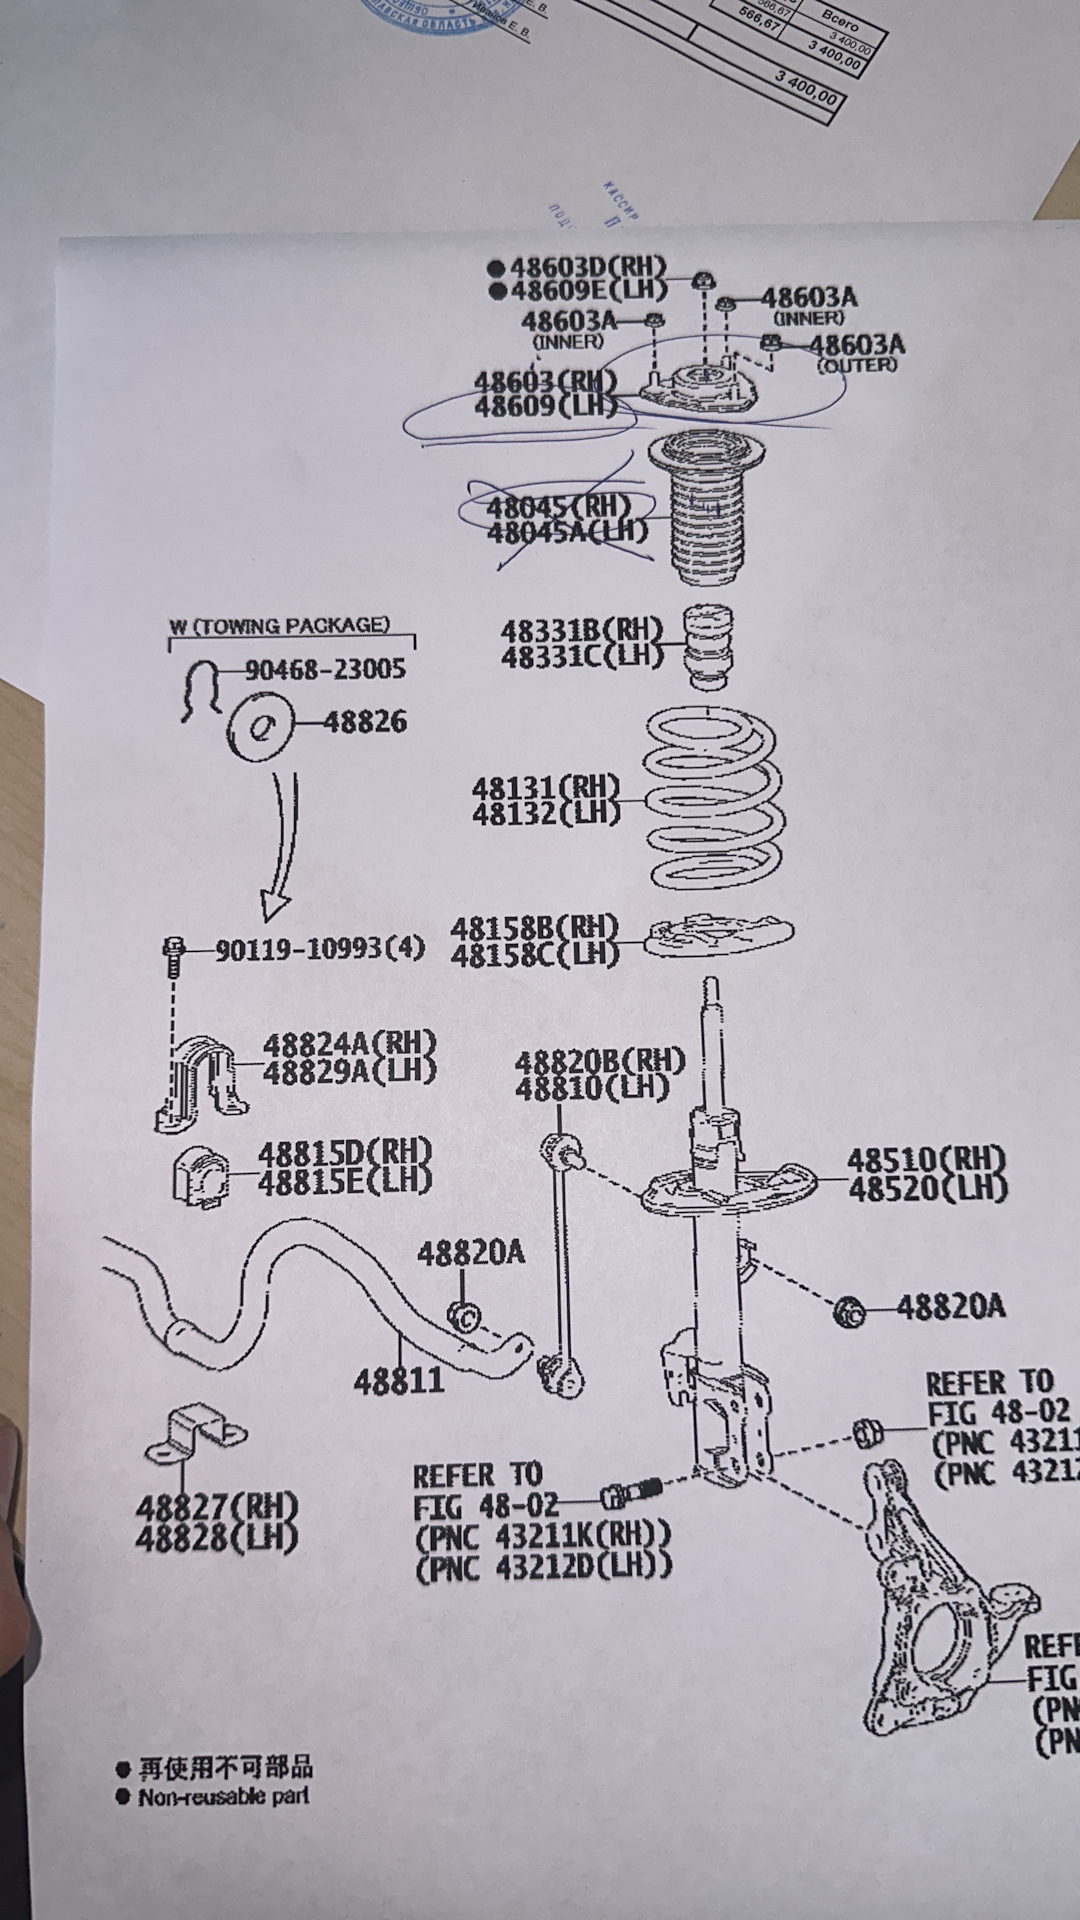 Е. В.
Е. В.
566,67
566,67
Всего
3 400,00
3 400,00
3 400,00
КАССИР
● 48603D(RH)
● 48609E(LH)
48603A
(INNER)
48603A
(INNER)
48603A
(OUTER)
48603(RH)
48609(LH)
48045(RH)
48045A(LH)
W (TOWING PACKAGE)
90468-23005
48826
48331B(RH)
48331C(LH)
48131(RH)
48132(LH)
90119-10993(4)
48158B(RH)
48158C(LH)
48824A(RH)
48829A(LH)
48820B(RH)
48810(LH)
48815D(RH)
48815E(LH)
48510(RH)
48520(LH)
48820A
48820A
48811
REFER TO
FIG 48-02
(PNC 43211
(PNC 43212
REFER TO
FIG 48-02
(PNC 43211K(RH))
(PNC 43212D(LH))
48827(RH)
48828(LH)
REFE
FIG
(PN
(PN
● 再使用不可部品
● Non-reusable part